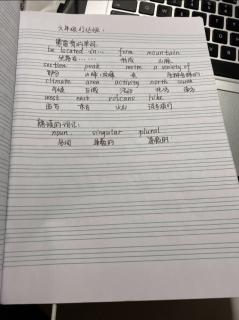 be located in... form mountain
坐落在...... 形成 山脉
section peak metre a variety of
部分 山峰;顶峰 米 各种各样的
climate area activity north south
气候 区域 活动 北方 南方
west east volcano hike
西方 东方 火山 徒步旅行
noun singular plural
名词 单数的 复数的